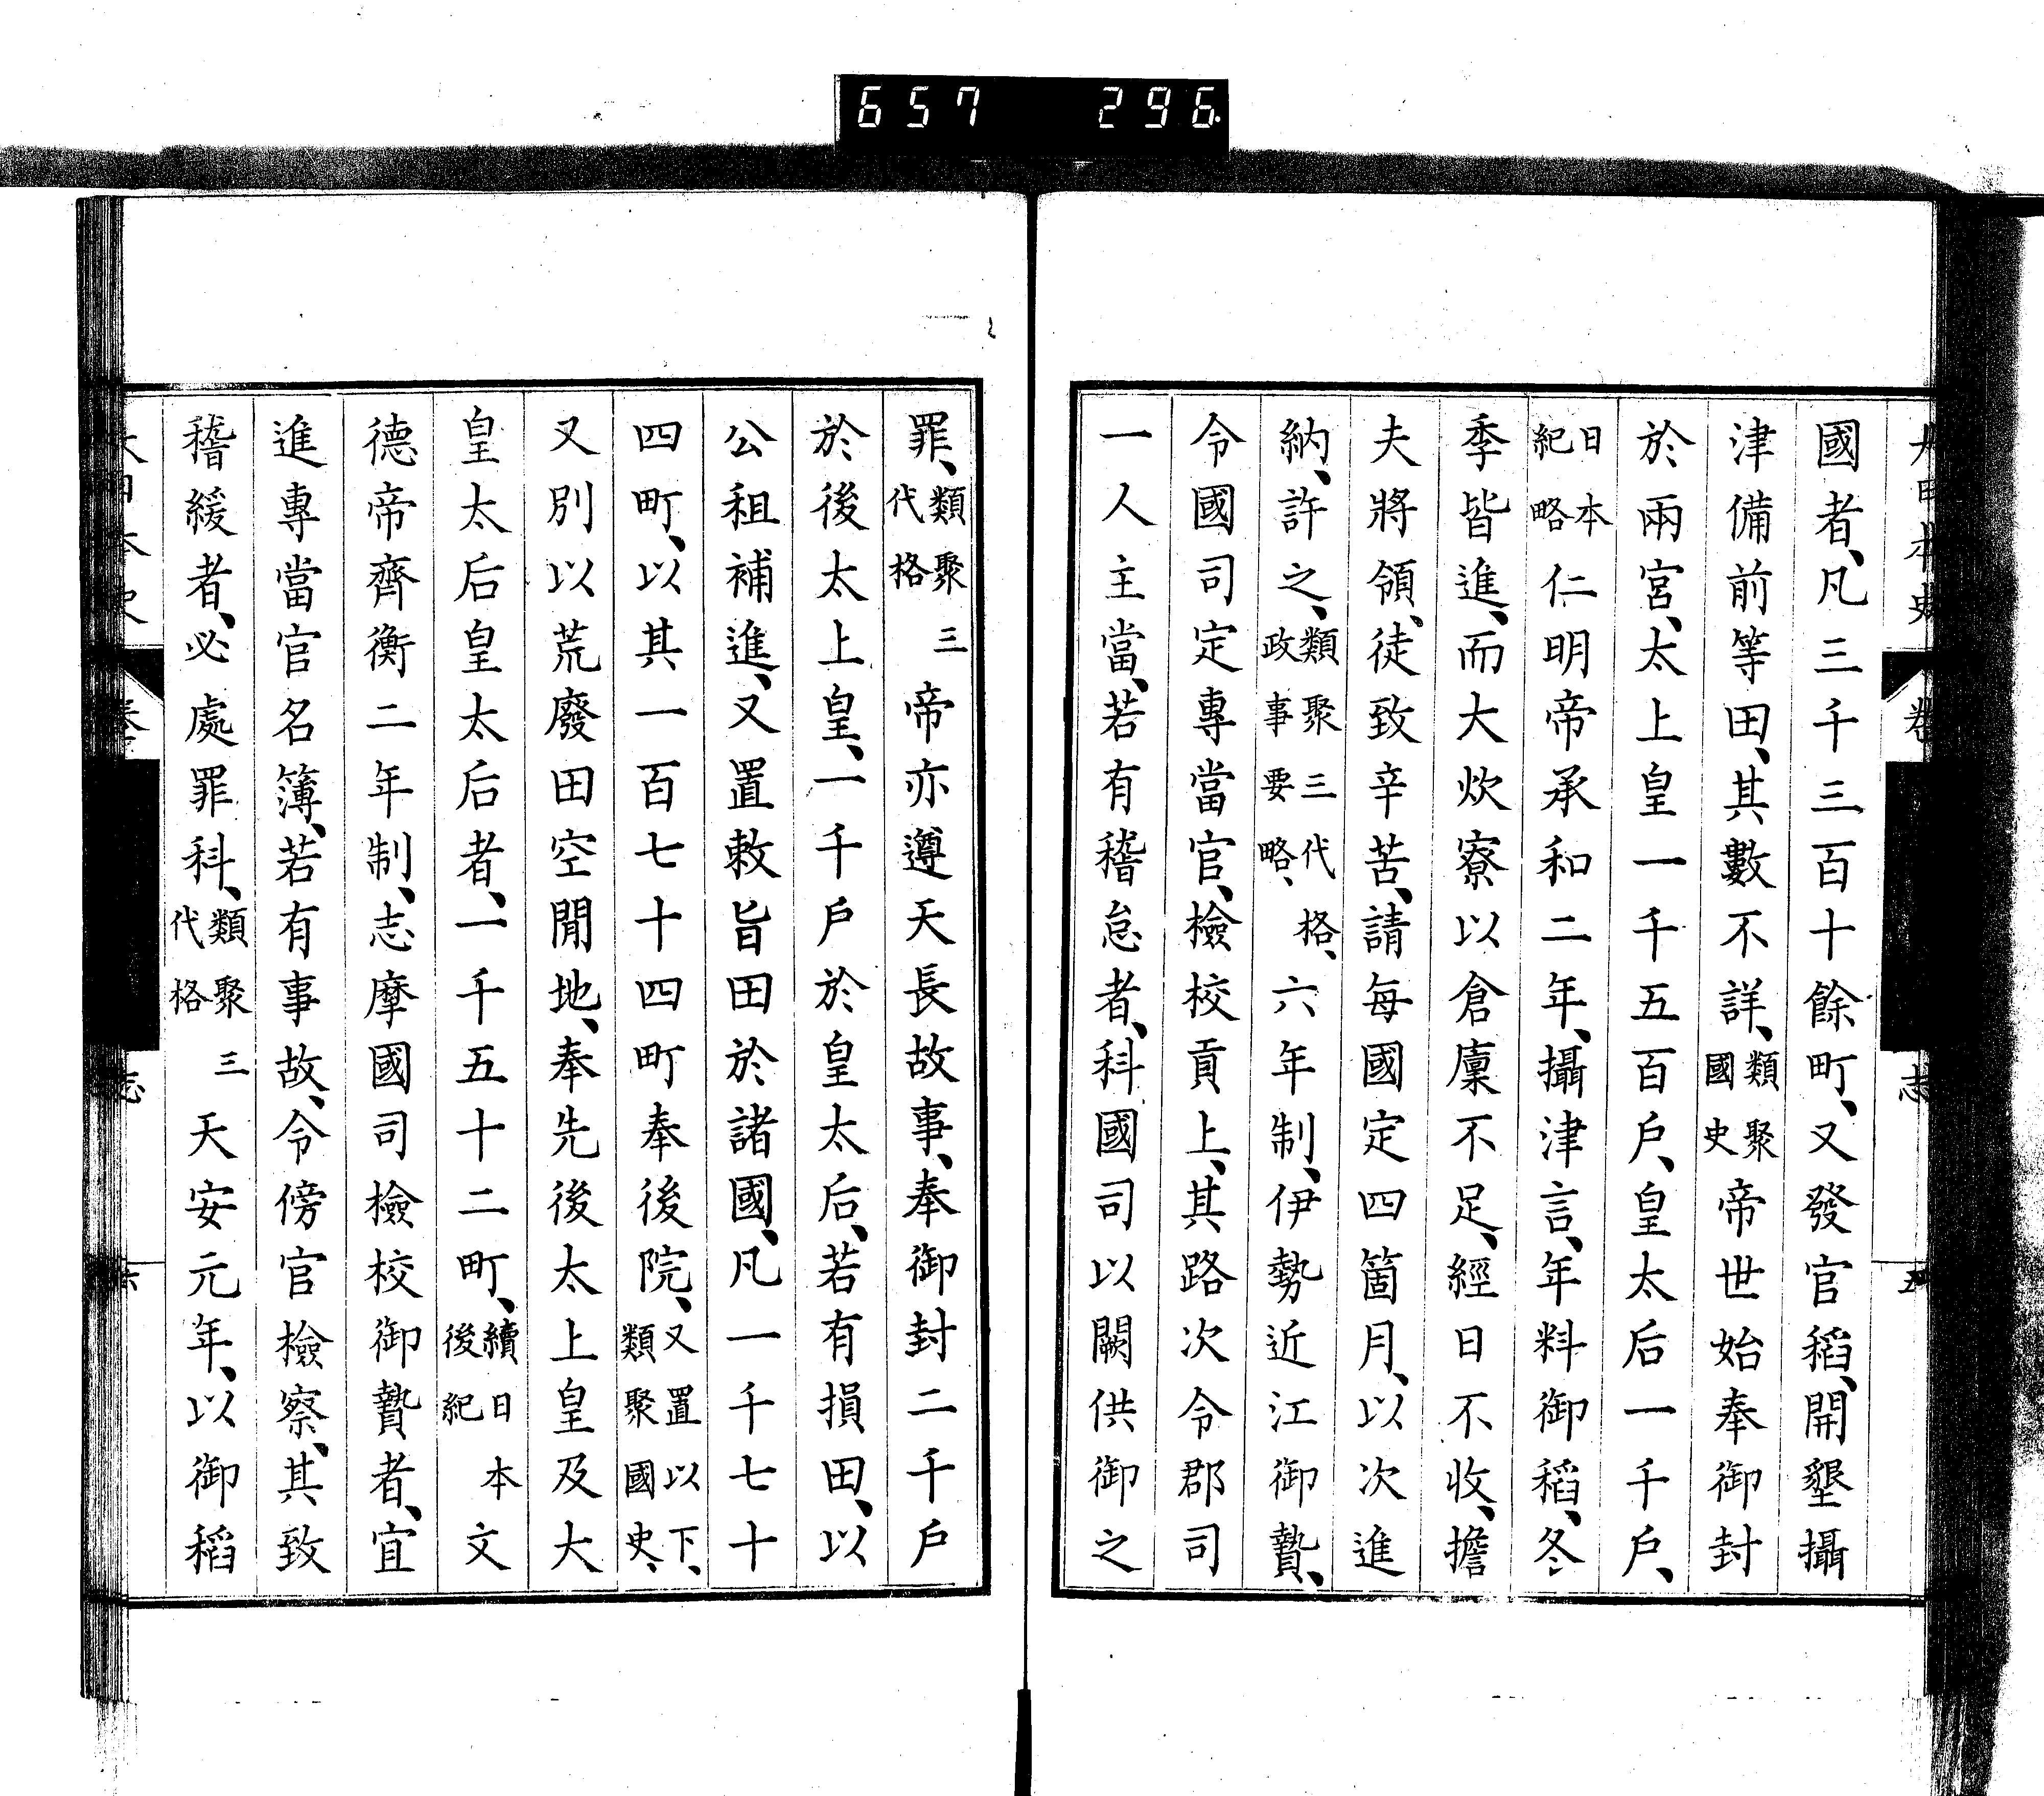 657 296
國者、凡三千三百十餘町、又發官稻、開墾攝
津備前等田、其數不詳、類聚國史帝世始奉御封
於兩宮、太上皇一千五百戶、皇太后一千戶、
日本紀略仁明帝承和二年、攝津言、年料御稻、冬
季皆進、而大炊寮以倉廩不足、經日不收、擔
夫將領、徒致辛苦、請每國定四箇月、以次進
納、許之、類聚三代格、政事要略、六年制、伊勢近江御贄、
令國司定專當官、檢校貢上、其路次令郡司
一人主當、若有稽怠者、科國司以闕供御之
罪、類聚三代格帝亦遵天長故事、奉御封二千戶
於後太上皇、一千戶於皇太后、若有損田、以
公租補進、又置敕旨田於諸國、凡一千七十
四町、以其一百七十四町奉後院、又置以下、類聚國史、
又別以荒廢田空閒地、奉先後太上皇及大
皇太后皇太后者、一千五十二町、續日本後紀文
德帝齊衡二年制、志摩國司檢校御贄者、宜
進專當官名簿、若有事故、令傍官檢察、其致
稽緩者、必處罪科、類聚三代格天安元年、以御稻